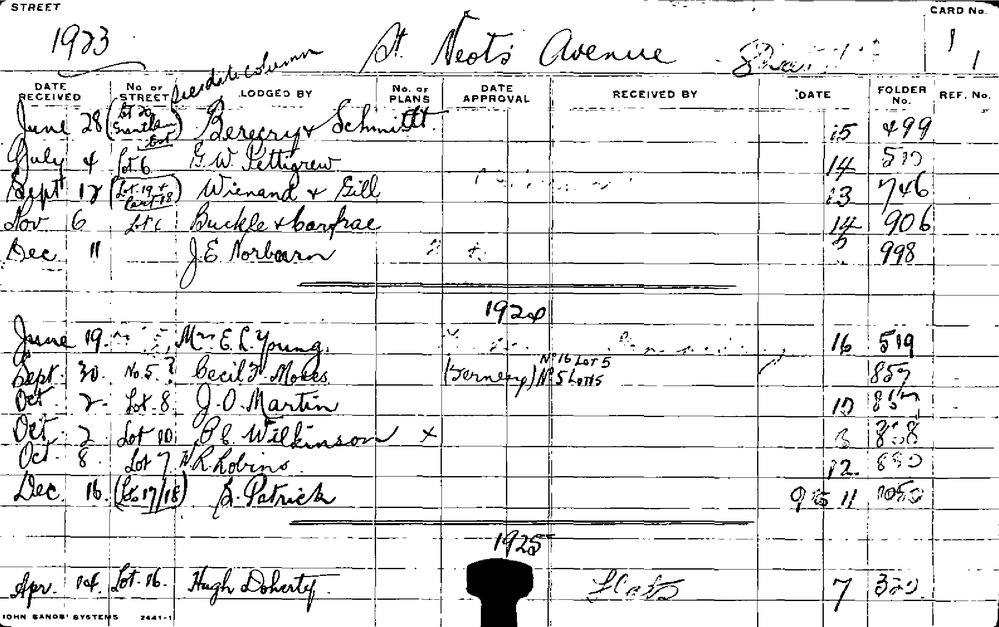 STREET
CARD No.
1923
St. Neots Avenue
1
1
See date column
DATE RECEIVED No. OF STREET LODGED BY No. OF PLANS DATE APPROVAL RECEIVED BY DATE FOLDER No. REF. No.
June 28 (Lot 20 Grantham Est) Berecry & Schmidtt. 15 499
July 4 Lot 6. G. W. Pettigrew 14
Sept 12 (Lot 19 & Part 18) Wienand & Gill 13 746
Nov 6 Lot 6 Buckle & Carfrae 14 906
Dec 11 J. E. Norbarn 998
1924
June 19. Mrs E. L. Young. 16 519
Sept 30. No. 5. ? Cecil Mokes No 16 Lot 5
No 5 Lot 15
Oct 2 Lot 8. J. O. Martin
Oct 2 Lot 10. Wilkinson x
Oct 8. Lot 7 Robins. 12.
Dec. 16. (Lots 17/18) Patrick 11 1050
1925
Apr. 14. Lot 16. Hugh Doherty. Flats 7 320
JOHN SANDS' SYSTEMS 2441-1